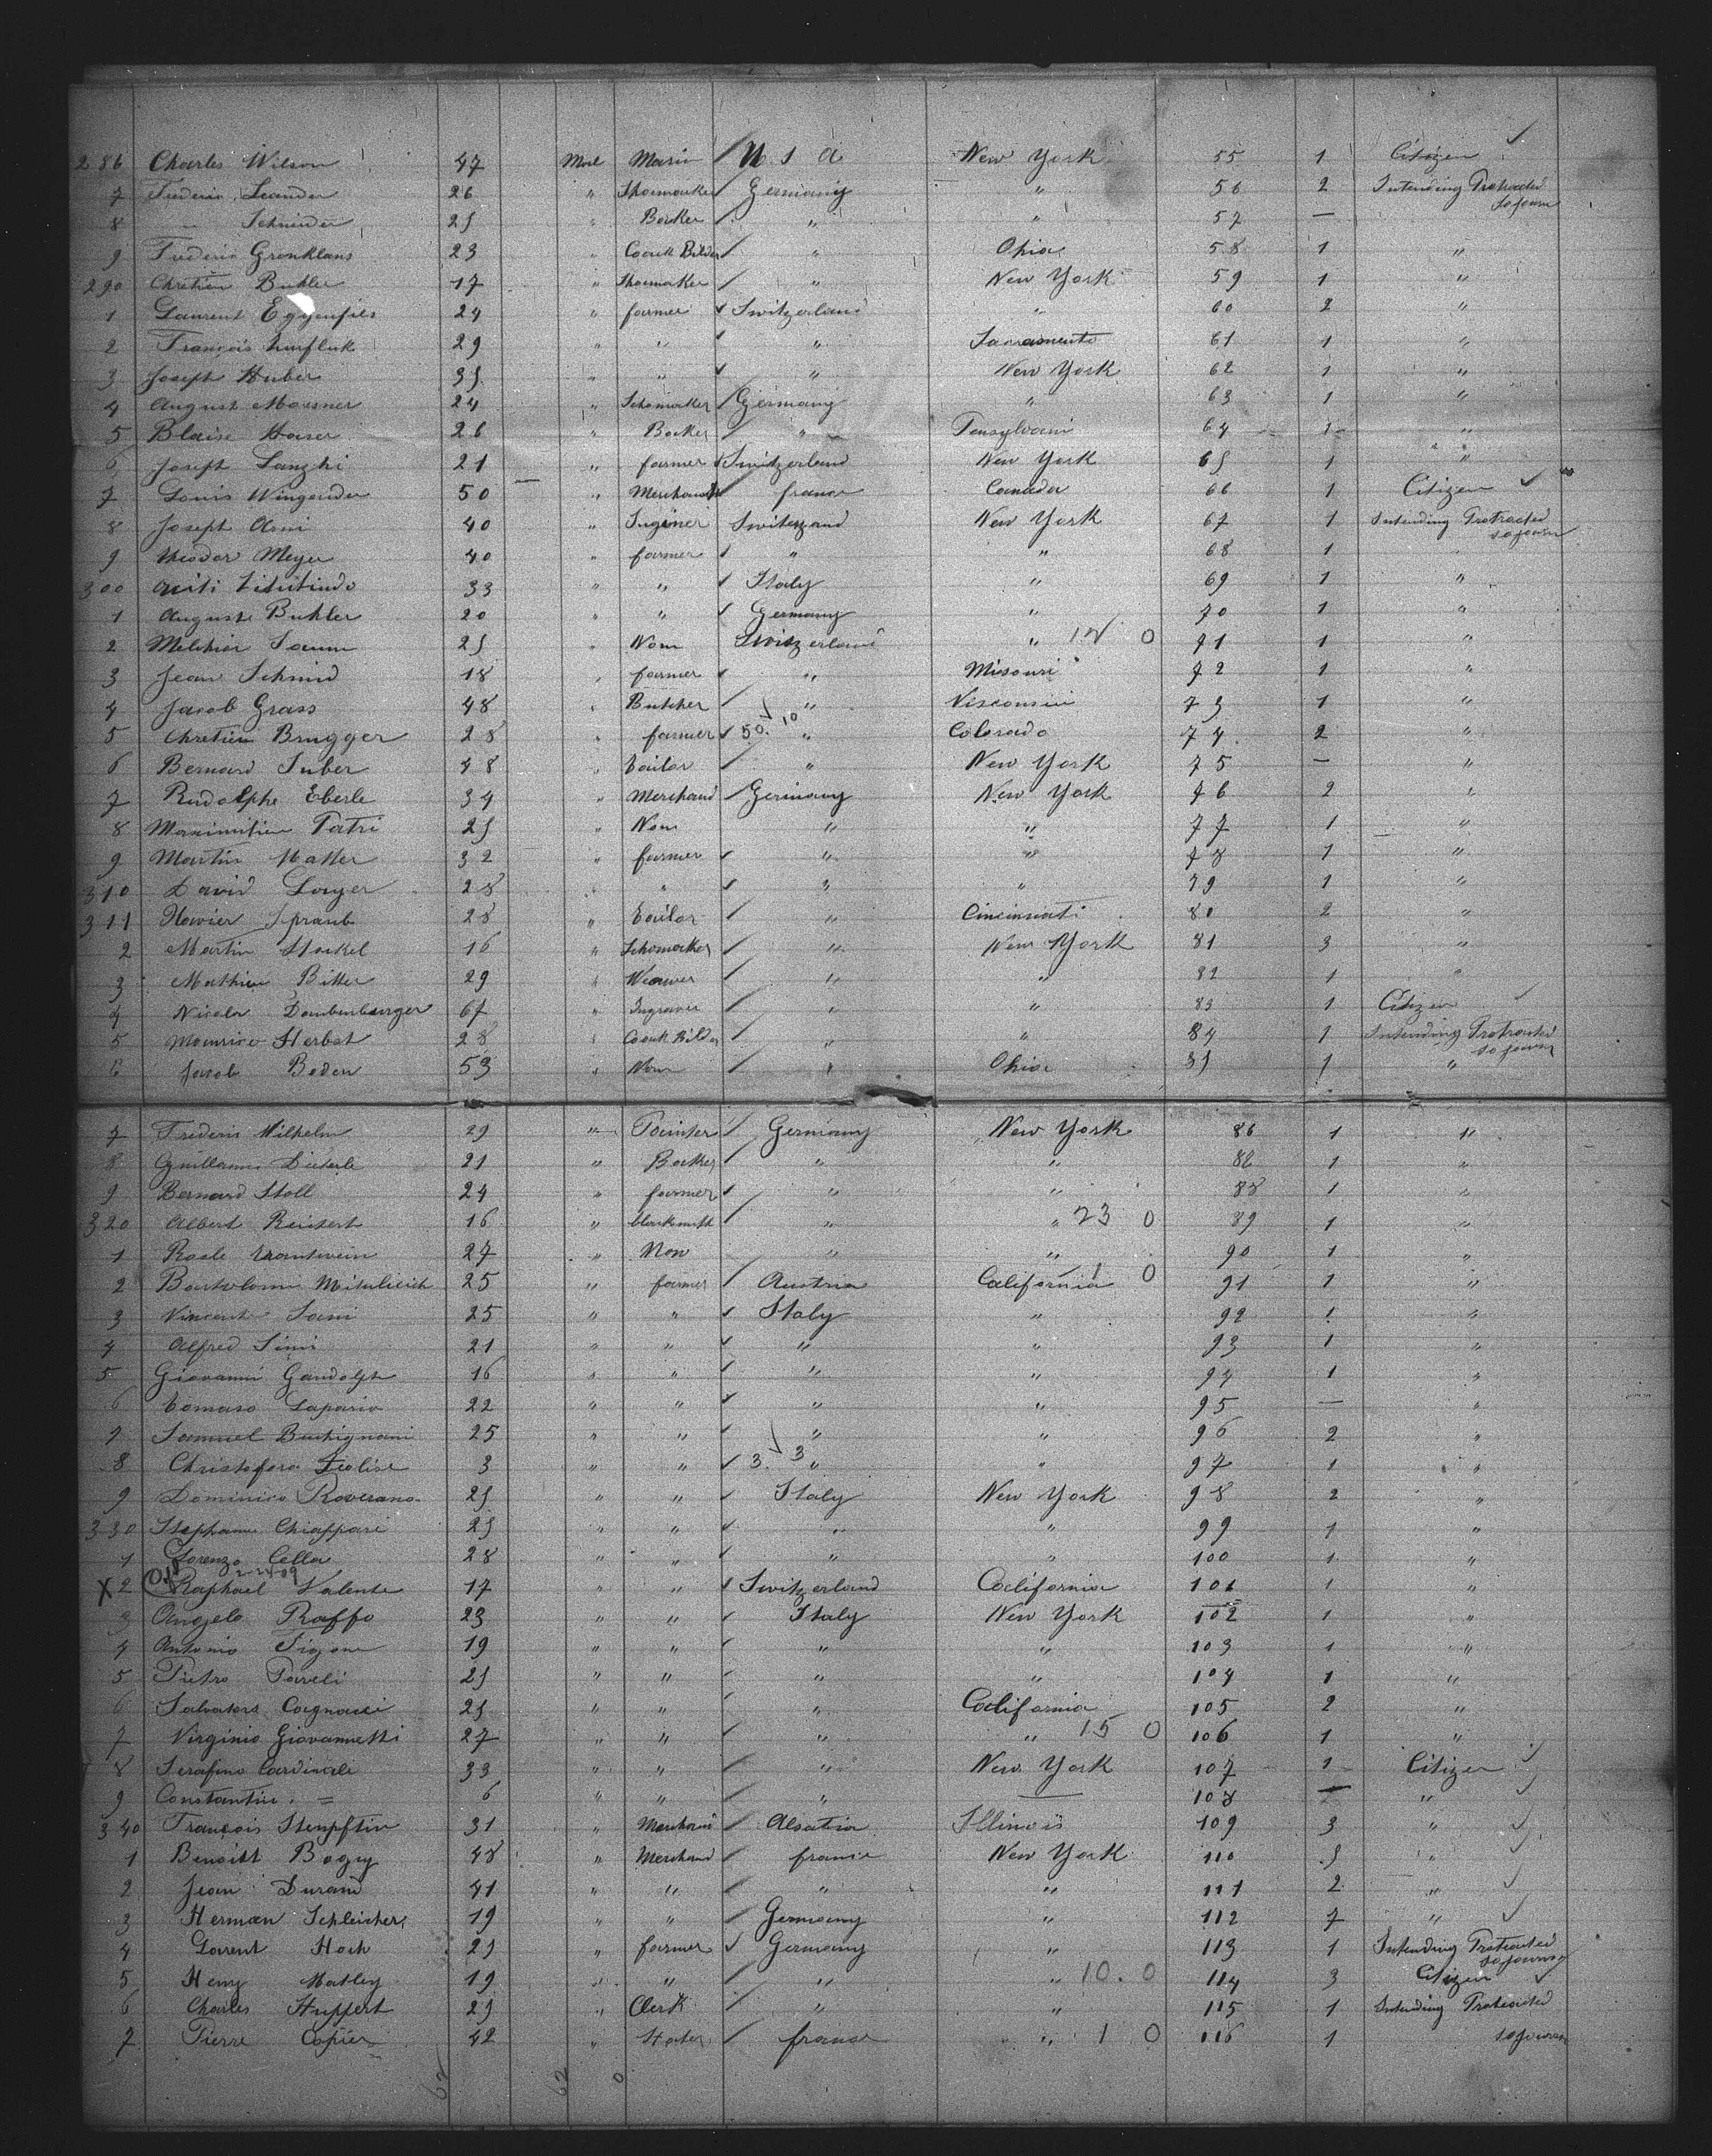 286 Charles Wilson 47 Male Marin U. S. A New York 55 1 Citizen
7 Frederic Leander 26 " Shoemaker Germany " 56 2 Intending Protracted sojourn
8 " Schnieder 25 " Backer " " 57 —
9 Frederic Gronklans 23 " Coach Bilder " Ohio 58 1 "
290 Chretien Buhler 17 " Shoemaker " New York 59 1 "
1 Laurent 24 " farmer Switzerland " 60 2 "
2 François 29 " " " Sacramento 61 1 "
3 Joseph Huber 35 " " " New York 62 1 "
4 August Mousner 24 " Schomacker Germany " 63 1 "
5 Blaise Hauser 26 " Backer " Pensylvani 64 1 "
6 Joseph Langhi 21 " farmer Switzerland New York 65 1 "
7 Louis Wingender 50 " Merchand france Canada 66 1 Citizen
8 Joseph Arni 40 " Inginer Switezrand New York 67 1 Intending Protracted sojourn
9 theodor Meyer 40 " farmer " " 68 1 "
300 33 " " Italy " 69 1 "
1 Auguste Buhler 20 " " Germany " 70 1 "
2 Melchior 25 " Non Switzerland " 0 71 1 "
3 Jean Schmid 18 " farmer " Missouri 72 1 "
4 Jacob Grass 48 " Butcher " Visconsin 73 1 "
5 Chretien Brugger 28 " farmer 50. 10 " Colorado 74 2 "
6 Bernard Suber 48 " tailor " New York 75 — "
7 Rudolphe Eberle 34 " Merchand Germany New York 76 2 "
8 Maximilien Patri 25 " Non " " 77 1 "
9 Martin Matter 32 " farmer " " 78 1 "
310 David Loyer 28 " " " " 79 1 "
311 Xavier Spraub 28 " tailor " Cincinnati 80 2 "
2 Martin Stockel 16 " Schomacker " New York 81 3 "
3 Mathieu Bitter 29 " Weaver " " 82 1 "
4 Nicola Daubenberger 67 " Ingraver " " 83 1 Citizen
5 Maurice Herbst 28 " Coach Bilder " " 84 1 Intending Protracted sojourn
6 Jacob Boden 53 " Non " Ohio 85 1 "
7 Frederic Wilhelm 29 " Painter Germany New York 86 1 "
8 Guillaume Dieterle 21 " Backer " " 82 1 "
9 Bernard Stoll 24 " farmer " " 88 1 "
320 Albert Reichert 16 " blacksmith " " 23 0 89 1 "
1 Rosele trautwein 27 " Non " " 90 1 "
2 Bartolomi Mitulicich 25 " farmer Austria California 1 0 91 1 "
3 Vincente Sami 25 " " Italy " 92 1 "
4 Alfred Simi 21 " " " " 93 1 "
5 Giovanni Gandolph 16 " " " " 94 1 "
6 tomaso Sapario 22 " " " " 95 — "
7 Samuel Buchignani 25 " " " " 96 2 "
8 Christofero Felise 3 " " 3. 3 " " 97 1 "
9 Dominico Roverano 25 " " Italy New York 98 2 "
330 Stephano Chiappari 25 " " " " 99 1 "
1 Lorenzo Cella 28 " " " " 100 1 "
2-24-09
X 2 Raphael Valente 17 " " Switzerland California 101 1 "
3 Angelo Raffo 23 " " Italy New York 102 1 "
4 Antonio Sigone 19 " " " " 103 1 "
5 Pietro Paveli 25 " " " " 104 1 "
6 Salvatore Cagnacci 25 " " " California 105 2 "
7 Virginio Giovannetti 27 " " " " 15 0 106 1 "
8 Serafino Cardinale 33 " " " New York 107 1 Citizen
9 Constantin = 6 " " " — 108 — "
340 François Stempflin 31 " Marchand Alsatia Illinois 109 3 "
1 Benoitt Bogy 48 " Merchand france New York 110 5 "
2 Jean Durand 41 " " " " 111 2 "
3 Herman Schleicher 19 " " Germany " 112 7 "
4 Lorent Hoch 25 " farmer Germany " 113 1 Intending Protracted sojourn
5 Henry Matley 19 " " " " 10. 0 114 3 Citizen
6 Charles Huppert 25 " Clerk " " 115 1 Intending Protracted
7 Pierre Copier 42 " Hater france " 1 0 116 1 sojourn
62 62 0